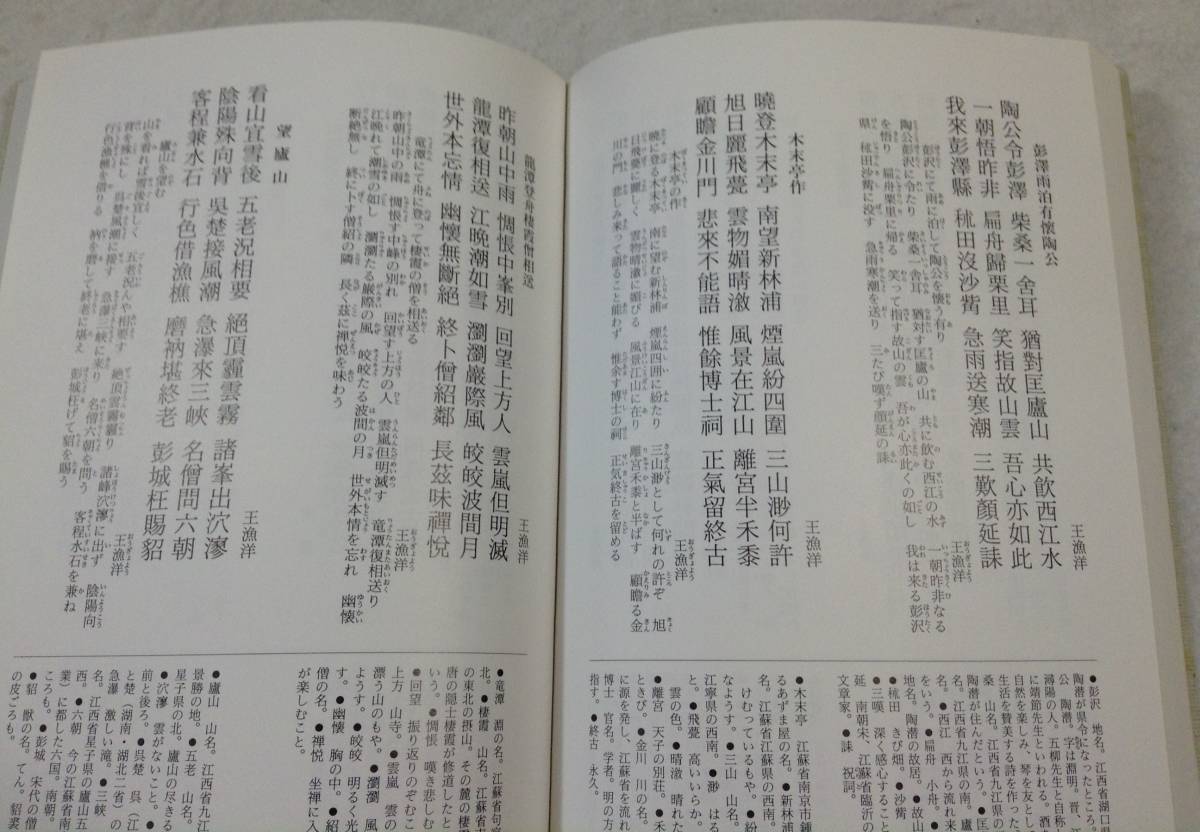 彭澤雨泊有懷陶公
王漁洋
陶公令彭澤 柴桑一舍耳 猶對匡廬山 共飲西江水
一朝悟昨非 扁舟歸栗里 笑指故山雲 吾心亦如此
我來彭澤縣 秫田沒沙觜 急雨送寒潮 三歎顏延誄
彭沢にて雨に泊して陶公を懐う有り
王漁洋
陶公彭沢に令たり 柴桑一舎耳 猶対す匡廬の山 共に飲む西江の水 一朝昨非なる
を悟り 扁舟栗里に帰る 笑って指す故山の雲 吾が心亦此くの如し 我は来る彭沢
県 秫田沙觜に没す 急雨寒潮を送り 三たび嘆ず顔延の誄
木末亭作
王漁洋
曉登木末亭 南望新林浦 煙嵐紛四圍 三山渺何許
旭日麗飛甍 雲物媚晴澂 風景在江山 離宮半禾黍
顧瞻金川門 悲來不能語 惟餘博士祠 正氣留終古
木末亭の作
王漁洋
暁に登る木末亭 南に望む新林浦 煙嵐四囲に紛たり 三山渺として何れの許ぞ 旭
日飛甍に麗しく 雲物晴澂に媚びる 風景江山に在り 離宮禾黍と半ばす 顧瞻る金
川の門 悲しみ来って語ること能わず 惟余す博士の祠 正気終古を留める
●彭沢 地名。江西省湖口
陶潜が県令になったところ
公 陶潜。字は淵明。晋、
潯陽の人。五柳先生と自称
に靖節先生といわれる。酒
自然を楽しみ、琴を友とし
生活を賛美する詩を作った
桑 山名。江西省九江県の
陶潜が住んだという。●匡
名。江西省九江県の南。●
江 西から流れ来
をいう。●扁舟 小舟。●
地名。陶潜の故居。●故山
●秫田 きび畑。●沙觜
●三嘆 深く感心すること
延 南朝宋、江蘇省臨沂の
文章家。●誄 祝詞。
●木末亭 江蘇省南京市鍾
るあずま屋の名。●新林浦
名。江蘇省江蘇県の西南。
けむっているもや。●紛
なようす。●三山 山名。
江寧県の西南。●渺 はる
●飛甍 高いいらか。
雲の色。●晴澂 晴れた
●離宮 天子の別荘。●禾
ときび。●金川 川の名。
に源を発し、江蘇省を流れ
博士 官名。学者。明の方
指す。●終古 永久。
龍潭登舟棲霞僧相送
王漁洋
昨朝山中雨 惆悵中峯別 回望上方人 雲嵐但明滅
龍潭復相送 江晩潮如雪 瀏瀏巖際風 皎皎波間月
世外本忘情 幽懷無斷絕 終卜僧紹鄰 長茲味禪悅
竜潭にて舟に登って棲霞の僧を相送る
王漁洋
昨朝山中の雨 惆悵す中峰の別れ 回望す上方の人 雲嵐但明滅す 竜潭復相送り
江晩れて潮雪の如し 瀏瀏たる巌際の風 皎皎たる波間の月 世外本情を忘れ 幽懐
断絶無し 終に卜す僧紹の隣 長く茲に禅悦を味わう
望廬山
王漁洋
看山宜雪後 五老況相要 絕頂靄雲霧 諸峯出泬漻
陰陽殊向背 吳楚接風潮 急瀑來三峽 名僧問六朝
客程兼水石 行色借漁樵 磨衲堪終老 彭城枉賜貂
廬山を望む
王漁洋
山を看れば雪後宜しく 五老況んや相要す 絶頂雲霧靄り 諸峰泬漻に出ず 陰陽向
背を殊にし 呉楚風潮に接す 急瀑三峡に来り 名僧六朝を問う 客程水石を兼ね
行色漁樵を借りる 衲を磨して終老に堪え 彭城枉げて貂を賜う
●竜潭 淵の名。江蘇省句容
北。●棲霞 山名。江蘇省南
の東北の摂山。その麓の棲霞
唐の隠士棲霞が修道したと
いう。●惆悵 嘆き悲しむ
●回望 振り返りのぞむこと
上方 山寺。●雲嵐 雲の
漂う山のもや。●瀏瀏 風
ようす。●皎皎 明るく光
す。●幽懐 胸の中。●紹
僧の名。●禅悦 坐禅に入
が楽しむこと。
●廬山 山名。江西省九江
景勝の地。●五老 山名。
星子県の北。廬山の尽きる
●泬漻 雲がないこと。●
前と後ろ。●呉楚 呉（江
と楚（湖南・湖北二省）の
急瀑 激しい滝。●三峡
名。江西省星子県の廬山五
西。●六朝 今の江蘇省南
業）に都した六国。南朝。
ころも。●彭城 宋代の僧
●貂 獣の名。てん。貂裘
の皮ごろも。